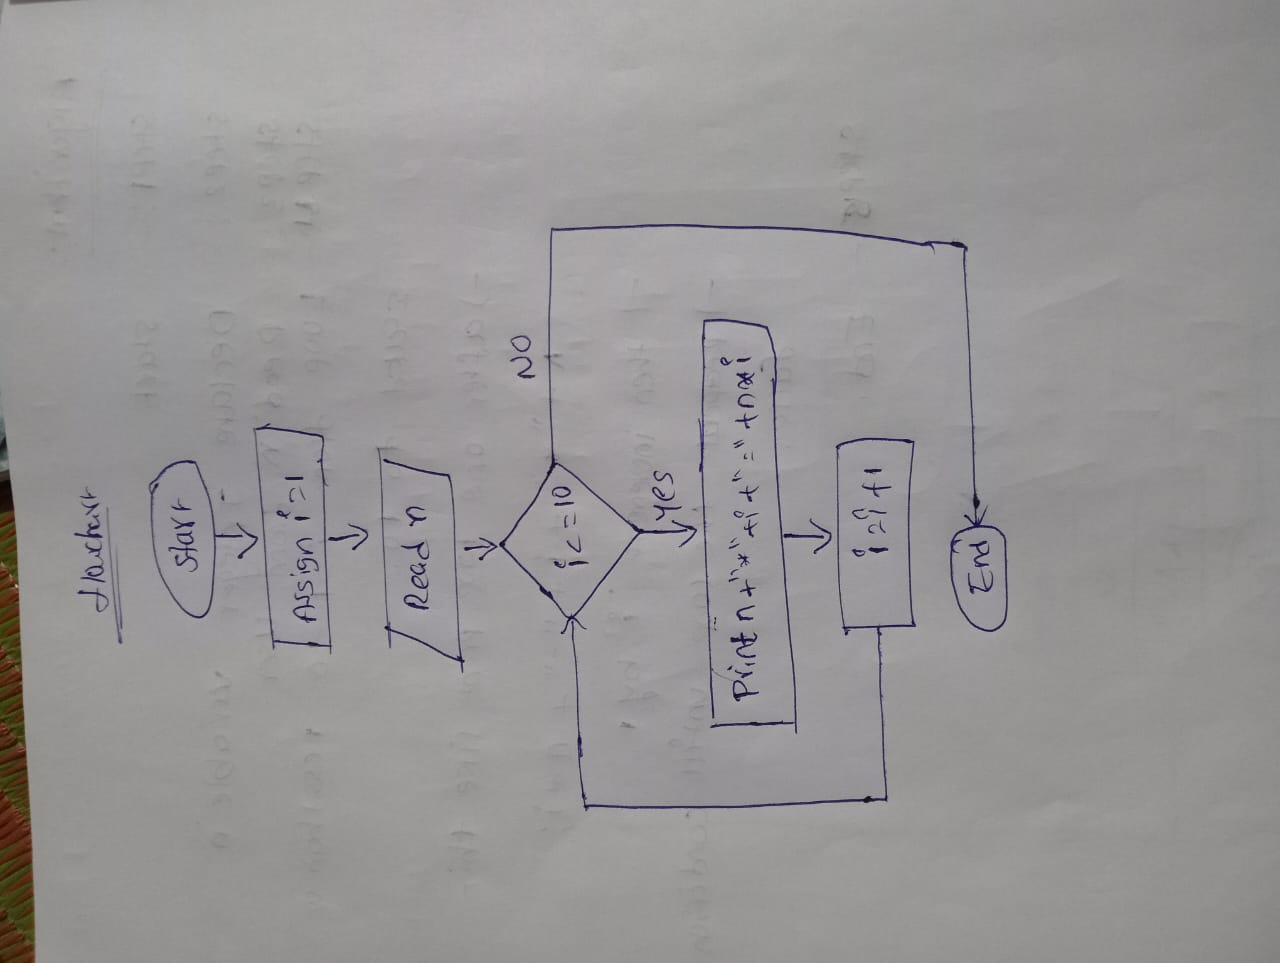 Flowchart
Start
Assign i=1
Read n
i<=10
NO
Yes
Print n+"*"+i+"="+n*i
i=i+1
End